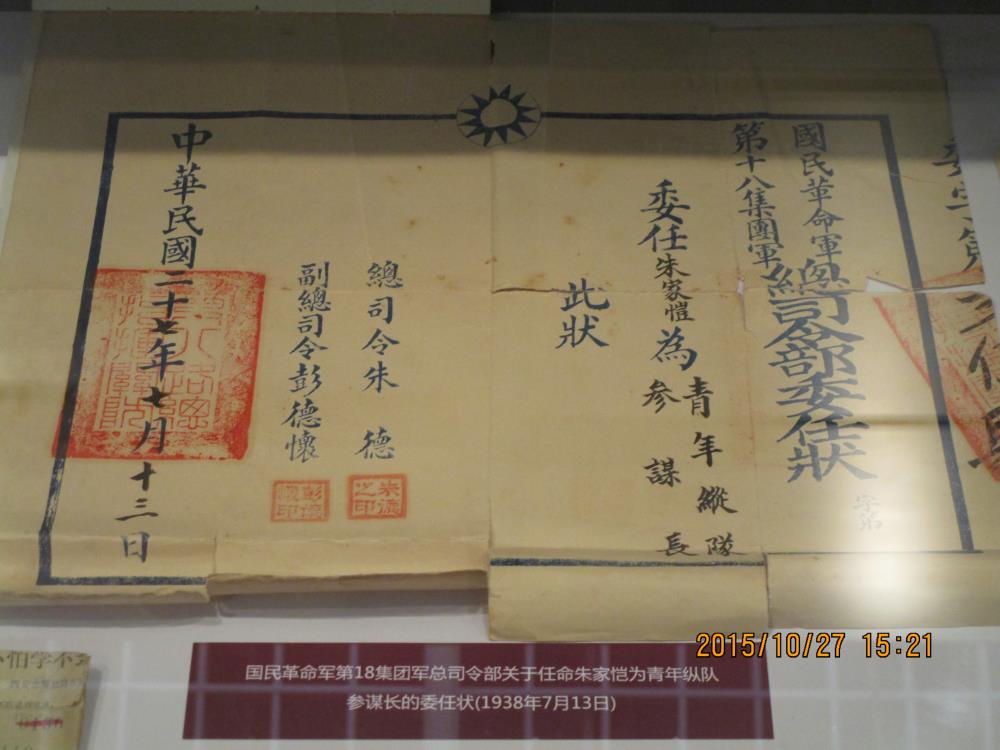 國民革命軍
第十八集團軍
總司令部委任狀
字第
委任朱家愷為青年縱隊
參謀長
此狀
總司令朱德
副總司令彭德懷
朱德之印
中華民國二十七年七月十三日
国民革命军第18集团军总司令部关于任命朱家恺为青年纵队
参谋长的委任状(1938年7月13日)
2015/10/27 15:21